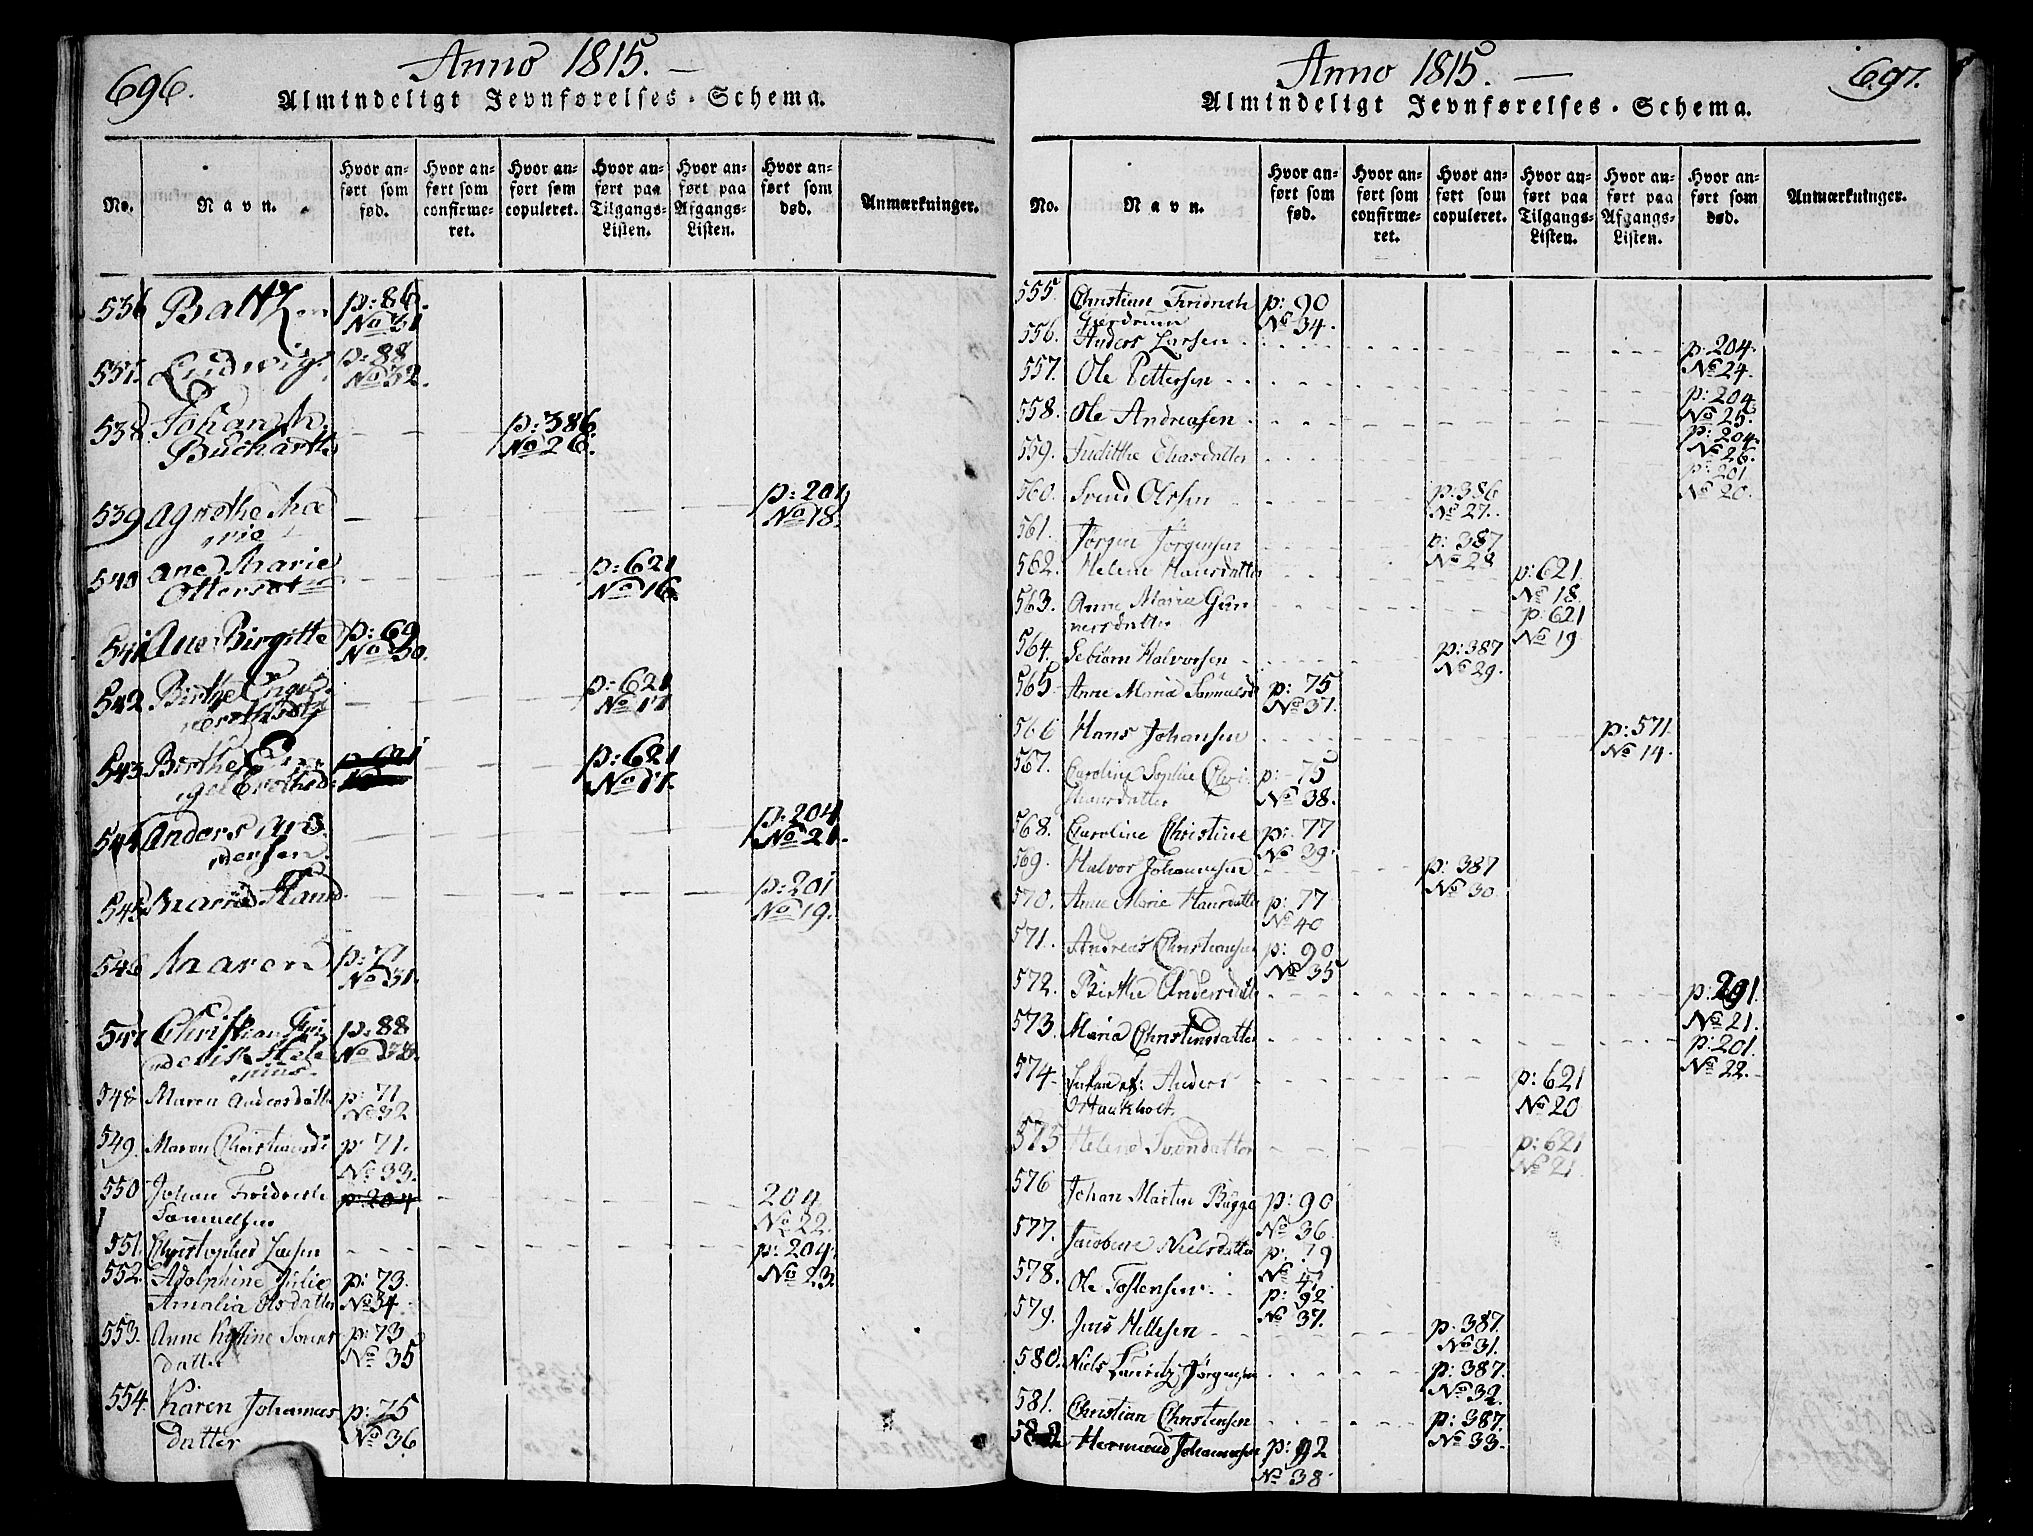 696.
Anno 1815.
Almindeligt Jevnførelses-Schema.
No.
Navn.
Hvor anført som fød.
Hvor anført som confirmeret.
Hvor anført som copuleret.
Hvor anført paa Tilgangs-Listen.
Hvor anført paa Afgangs-Listen.
Hvor anført som død.
Anmærkninger.
536 Baltz p: 86. No 31
537. Ludwig p: 88 No 32.
538 Johan Buchart p: 386 No 26.
539 Agnethe Ma p: 201 No 18.
rie
540 Ane Marie p: 621 No 16.
Ottersdt
541 Ane Birgitte p: 69 No 30.
542 Birthe p: 621 No 17
543 Birthe p: 621 No 17.
544 Anders An p: 204 No 21.
dersen
545 Maria Hansd p: 201 No 19.
546 Maren p: 71 No 31.
547 Christian Fri p: 88 No 33.
derik
548 Maren Andersdatte p: 71 No 32
549. Maren Christiansd: p: 71. No 33.
550 Johan Fridrich 204 No 22.
Samuelsen
551. Christopher Larsen p: 204. No 23
552. Adolphine Julie p: 73.
Amalia Olsdatter No 34
553. Anne Sørens p: 73
datter No 35
554. Karen Johannes p: 75
datter No 36
697.
Anno 1815.
Almindeligt Jevnførelses-Schema.
No.
Navn.
Hvor anført som fød.
Hvor anført som confirmeret.
Hvor anført som copuleret.
Hvor anført paa Tilgangs-Listen.
Hvor anført paa Afgangs-Listen.
Hvor anført som død.
Anmærkninger.
555. Christian Fridrich p: 90
Gjerdrum No 34.
556. Anders Larsen p: 204. No 24.
557. Ole Pettersen p: 204. No 25.
558. Ole Andreasen p: 204. No 26.
559. Judithe Eliasdatter p: 201 No 20.
560. Svend Olsen p: 386 No 27.
561. Jørgen Jörgensen p: 387 No 28
562. Helene Hansdatter p: 621. No 18.
563. Anne Maria Gun p: 621 No 19
nersdatter
564. Sebiørn Halvorsen p: 387 No 29.
565 Anne Maria Samuelsd p: 75 No 37.
566 Hans Johansen p: 571 No 14.
567. Caroline Sophie Chri p: 75
stiansdatter No 38.
568. Caroline Christine p: 77 No 39.
569. Halvor Johannesen p: 387 No 30.
570. Anne Marie Hansdatter p: 77 No 40
571. Andreas Christiansen p: 90 No 35
572. Birthe Andersdatter p: 201. No 21.
573. Maria Christensdatter p: 201. No 22.
574. Anders p: 621 No 20
575 Helene Svendatter p: 621 No 21.
576 Johan Martin Bugge p: 90 No 36.
577. Jacobine Nielsdatter p: 79 No 41.
578. Ole Tostensen p: 92 No 37.
579. Jens Hellesen p: 387. No 31.
580. Niels Lauritz Jørgensen p: 387. No 32.
581. Christian Christensen p: 387. No 33.
582 Hermand Johannesen p: 92 No 38